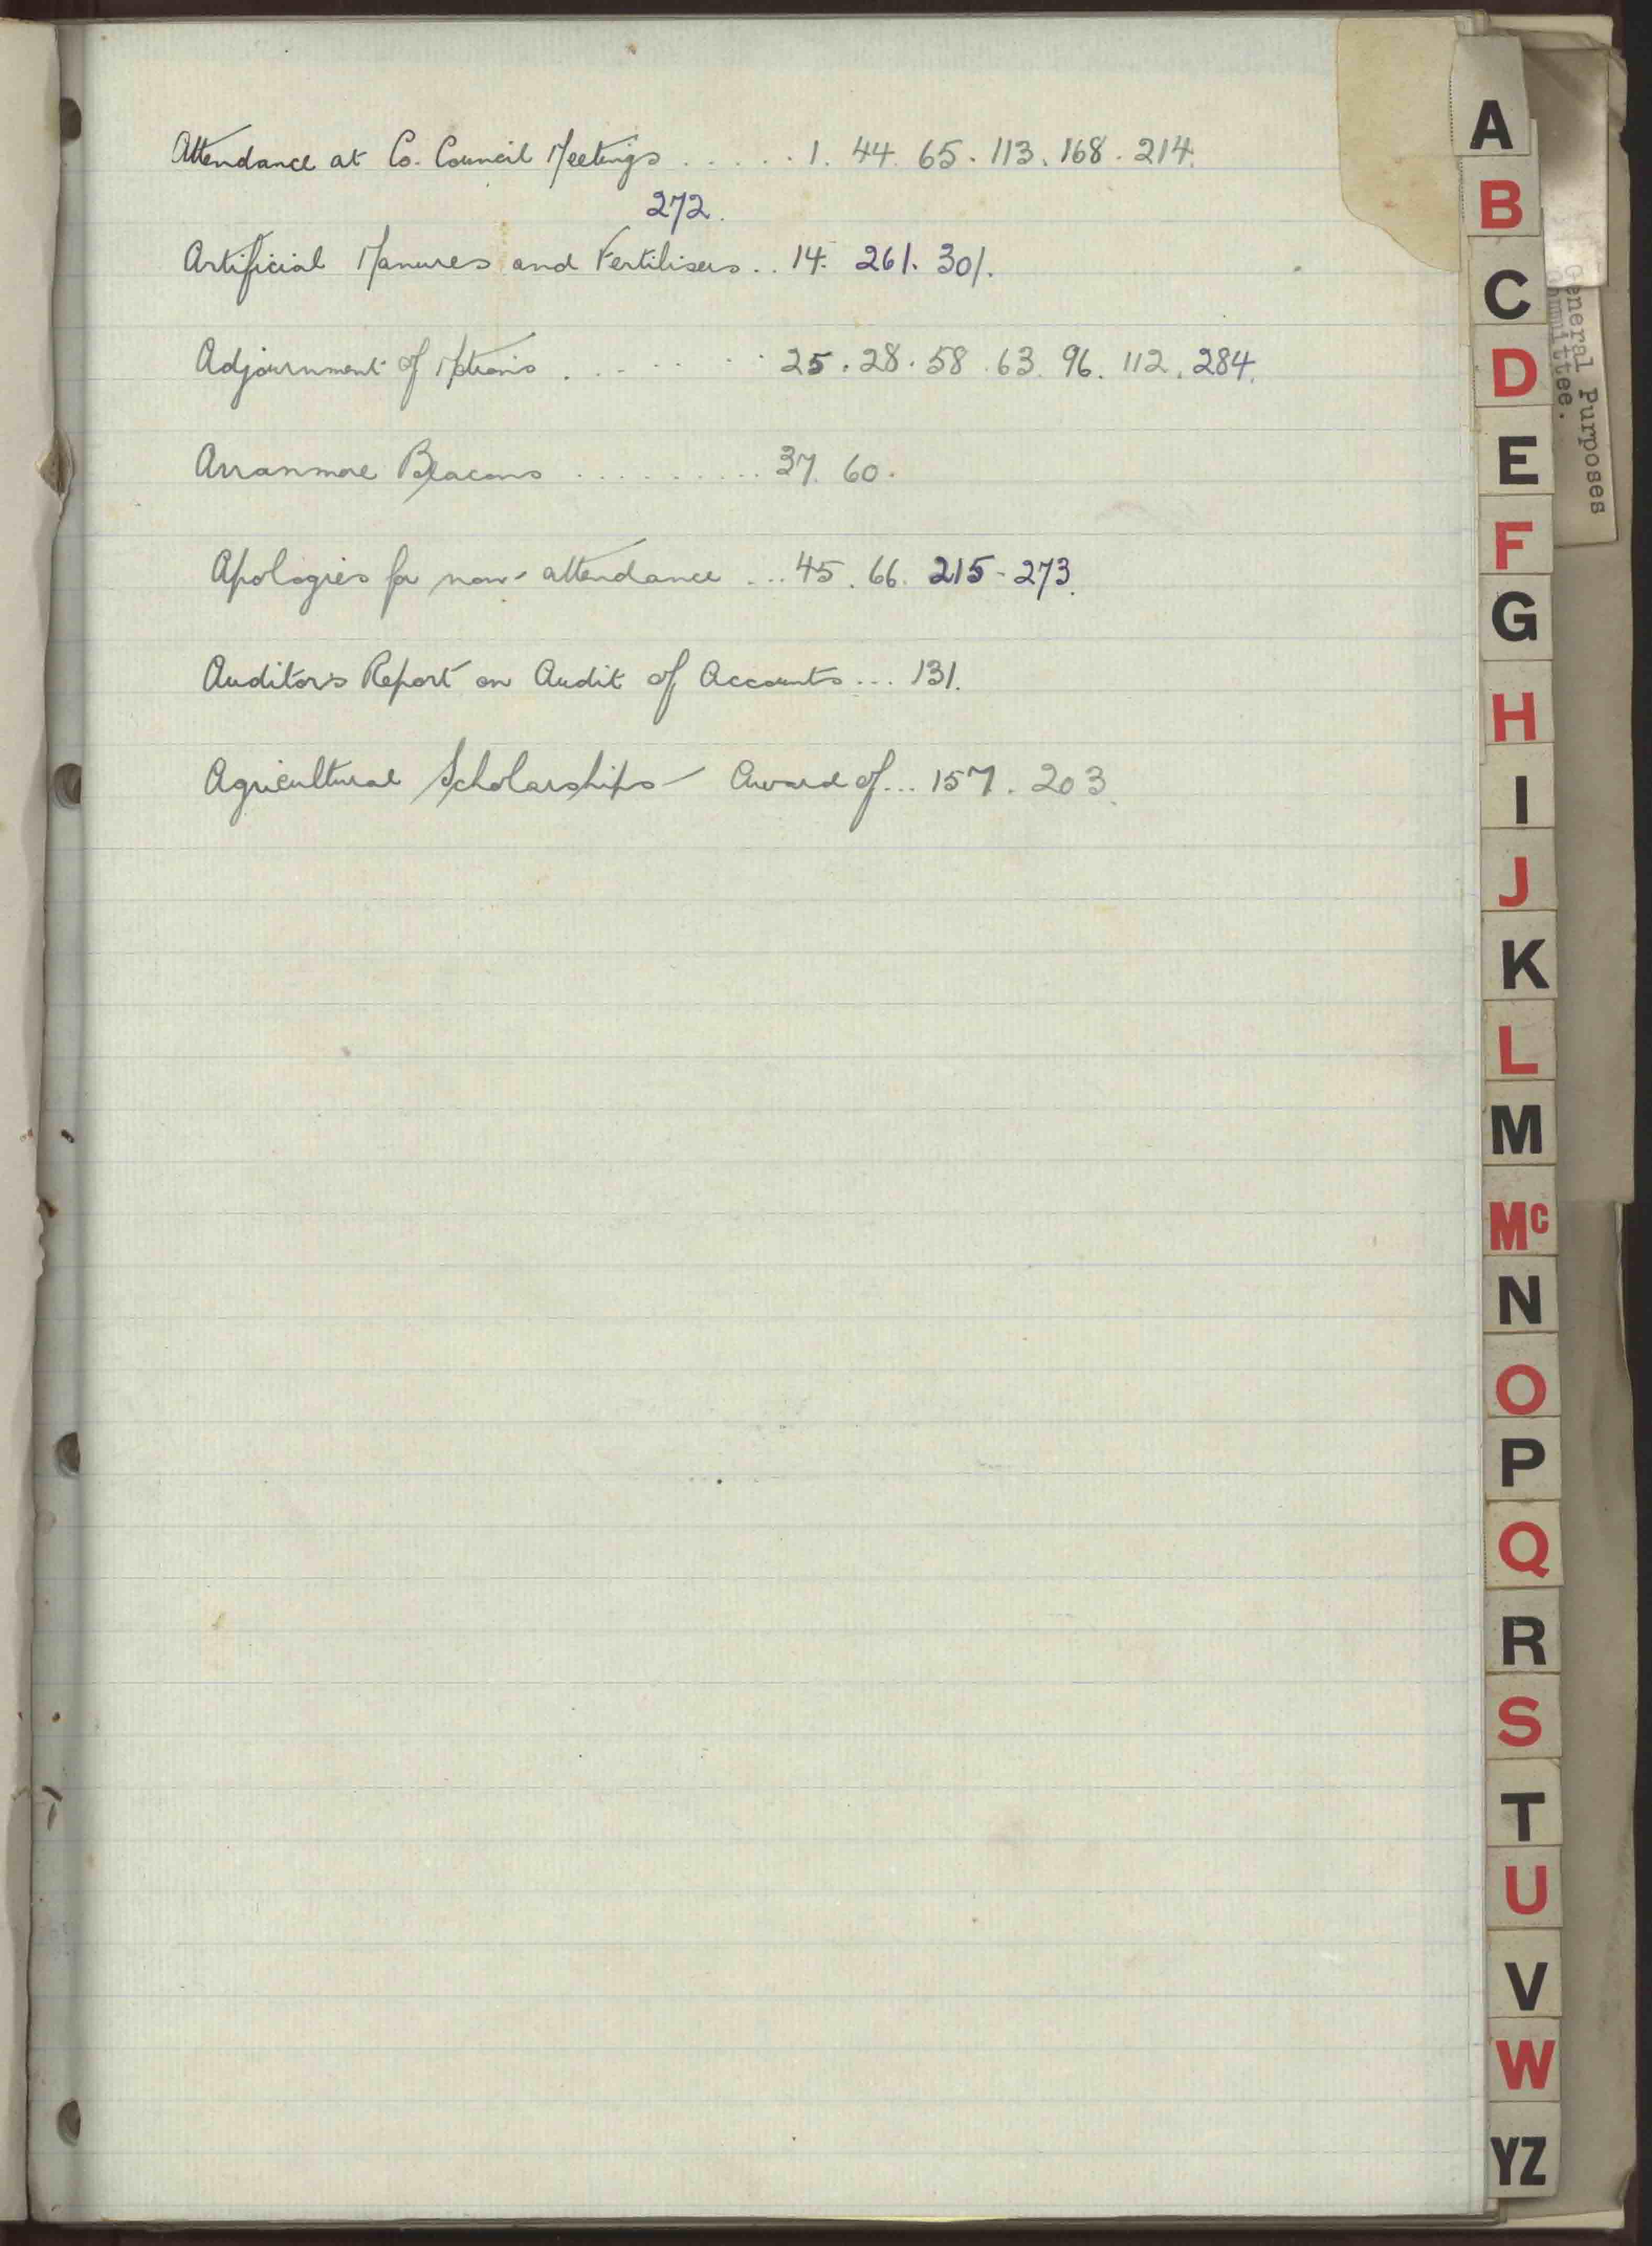 Attendance at Co. Council Meetings ..... 1. 44. 65. 113. 168. 214.
272.
Artificial Manures and Fertilisers .. 14. 261. 301.
Adjournment of Motions ...... 25. 28. 58. 63. 96. 112. 284.
Arranmore Beacons .......... 37. 60.
Apologies for non-attendance ... 45. 66. 215-273.
Auditor's Report on Audit of Accounts ... 131.
Agricultural Scholarships - Award of... 157. 203.
A
B
C
D
E
F
G
H
I
J
K
L
M
Mc
N
O
P
Q
R
S
T
U
V
W
YZ
General Purposes
Committee.